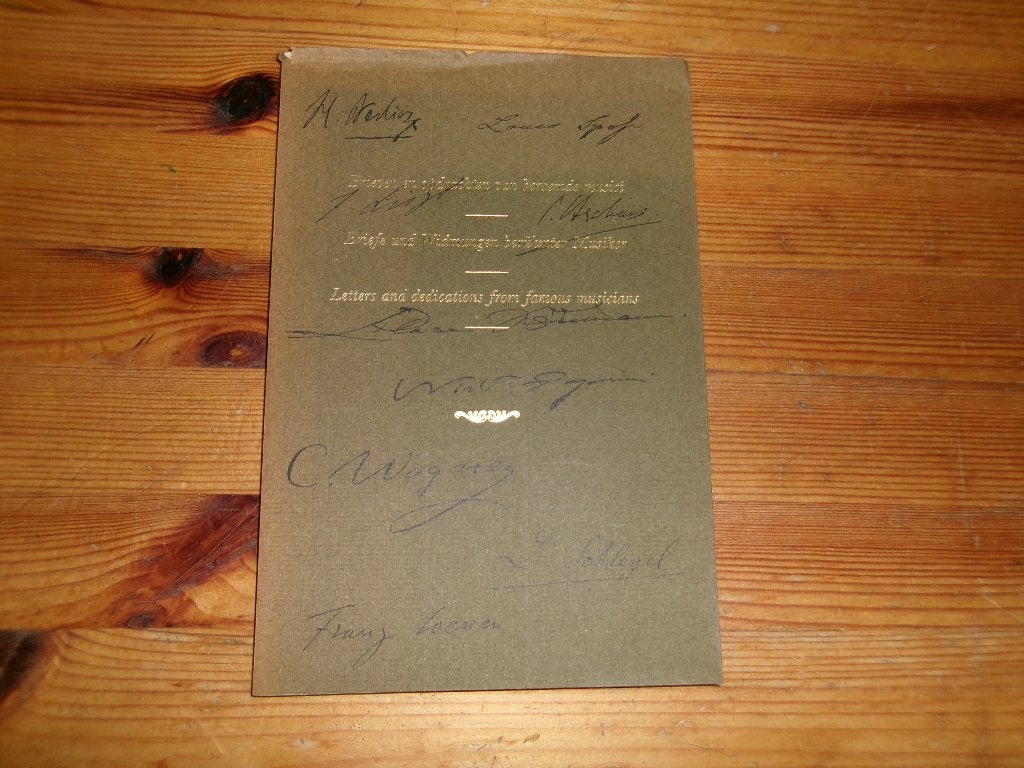 H. Berlioz Louis Spohr
Brieven en opdrachten van beroemde musici
F Liszt
Briefe und Widmungen berühmter Musiker
Letters and dedications from famous musicians
Clara Schumann.
Paganini
C. Wagner
L. Schlegel
Franz Coenen